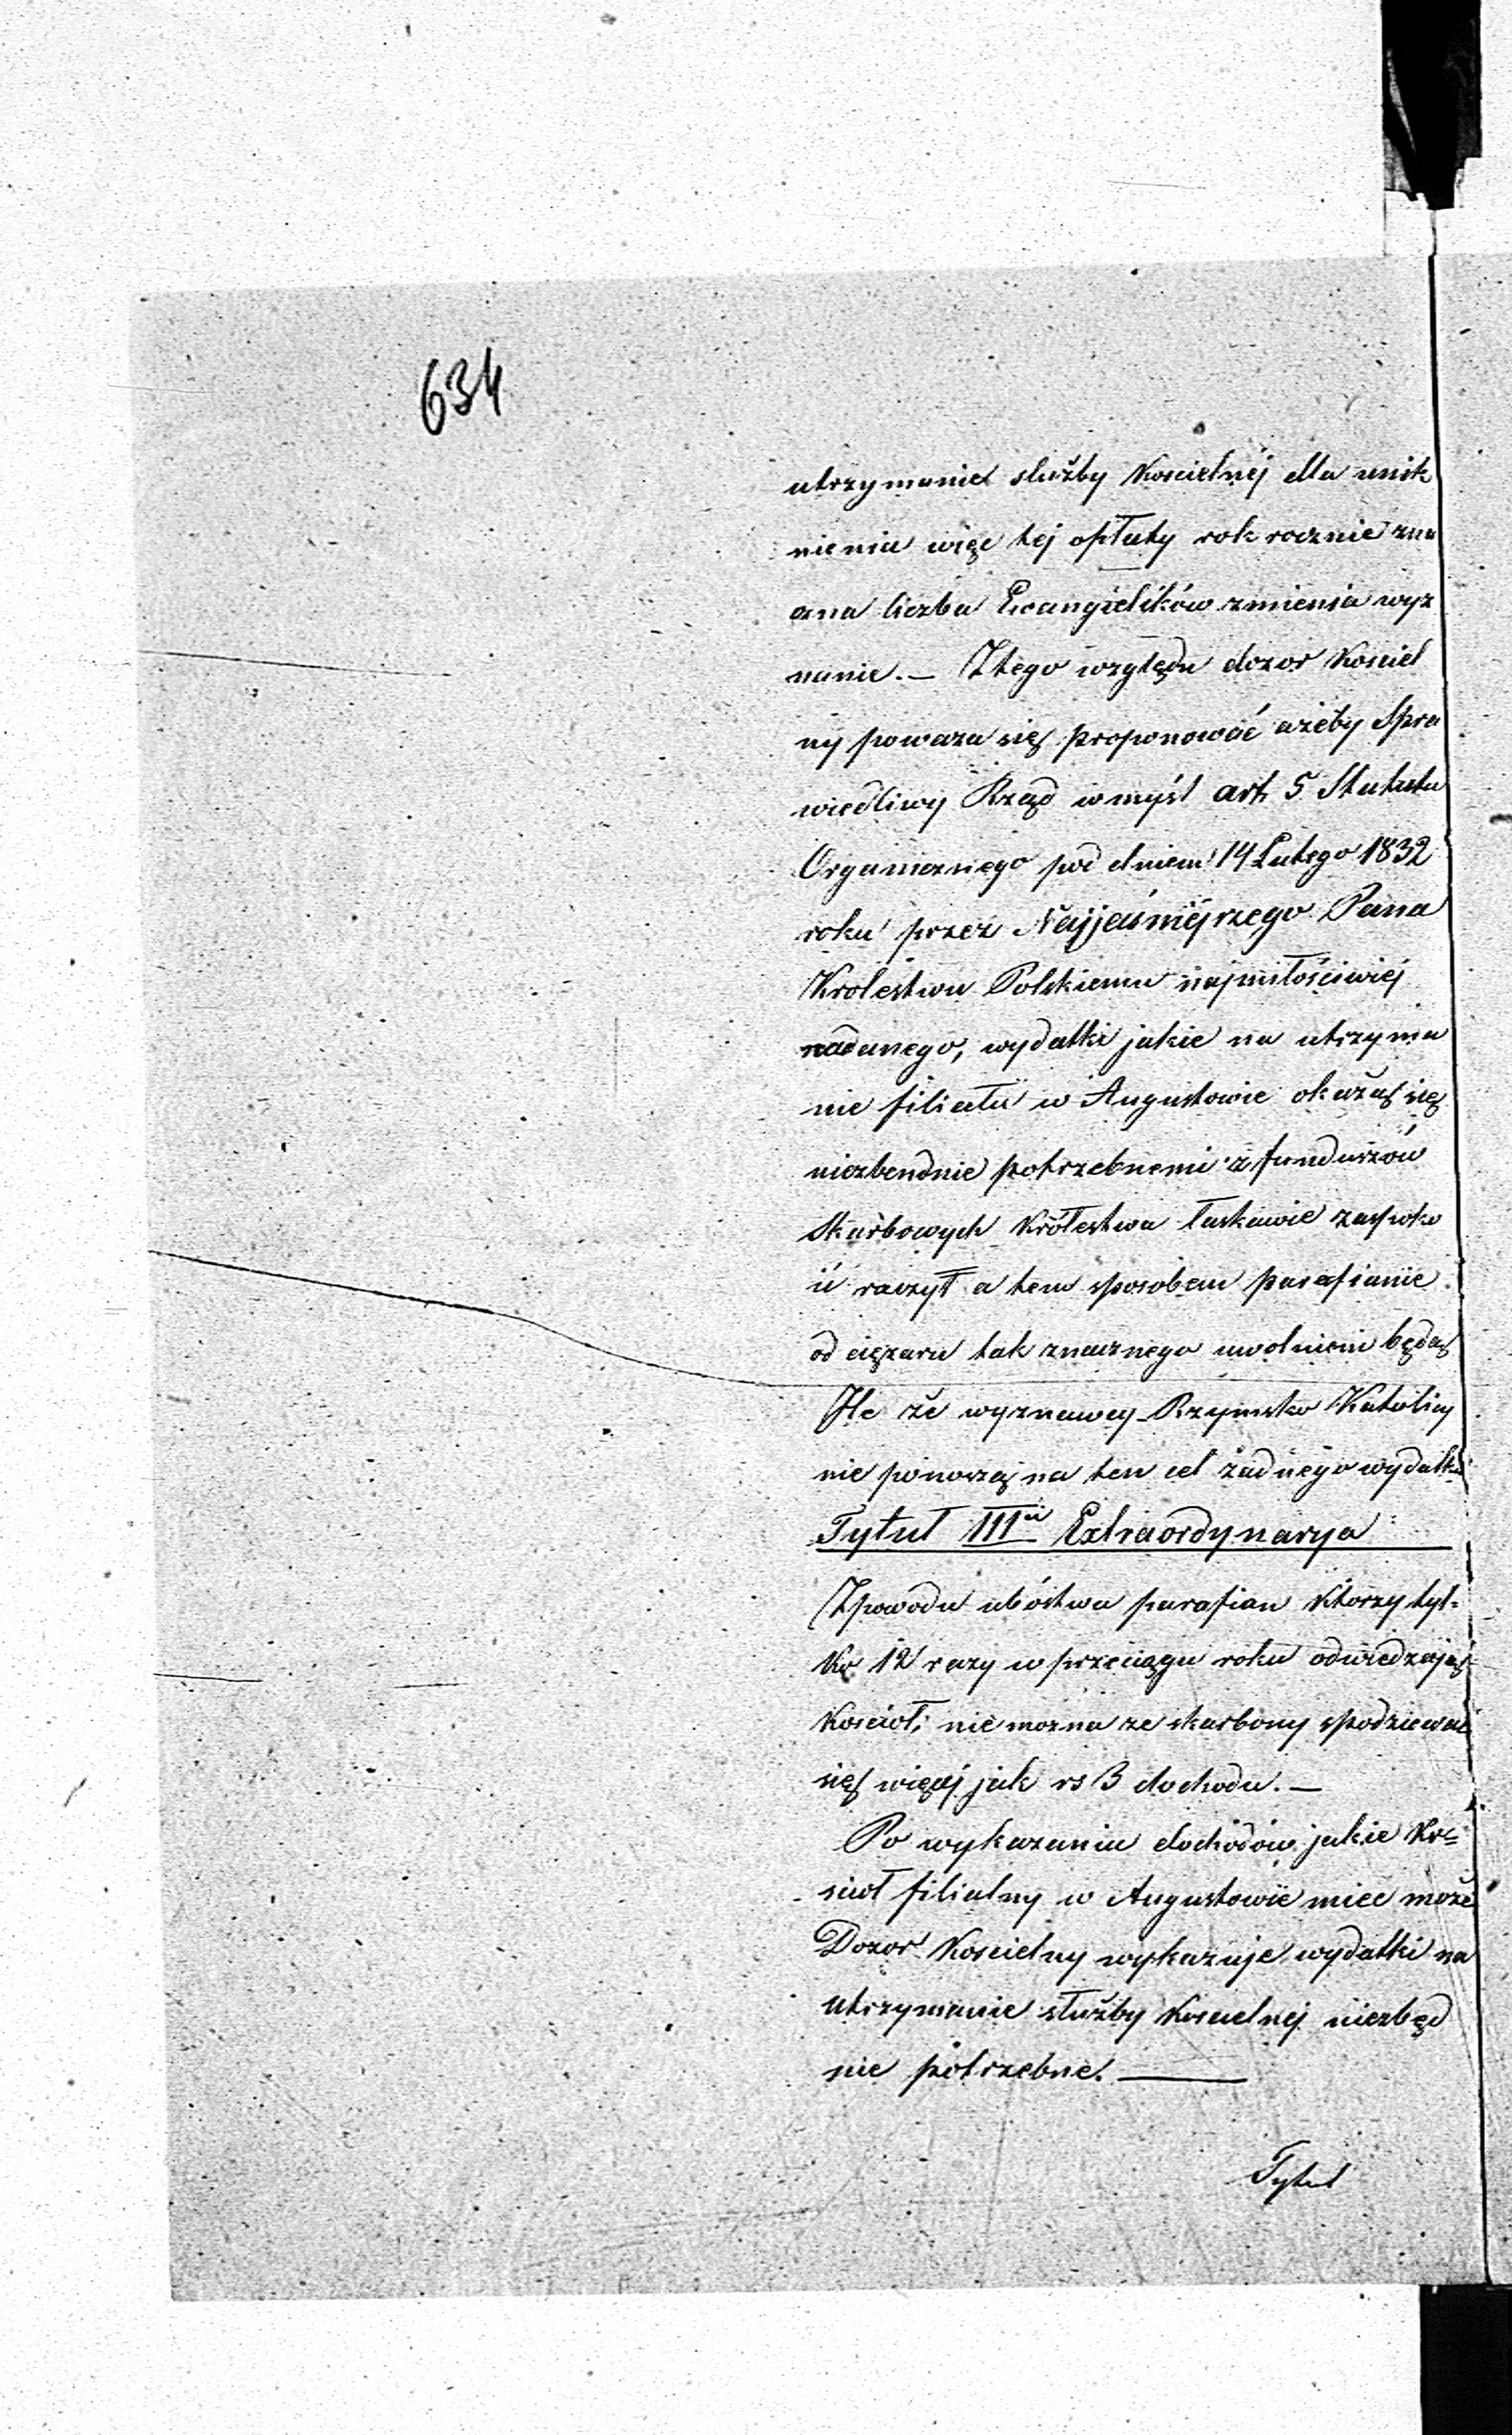 634
utrzymanie służby Koscielnéj dla unik
nienia więc tej opłaty rok rocznie zna
czna liczba Ewangielików zmienia wyz
nanie. — Ztego względu dozor Kosciel
ny powaza się proponować ażeby Spra
wiedliwy Rząd w myśl art. 5 Statutu
Organicznego pod dniem 14 Lutego 1832
roku przez Najjaśniéjrzego Pana
Krolestwu Polskiemu najmiłościwiéj
nadanego, wydatki jakie na utrzyma
nie filiału w Augustowie okażą się
niezbendnie potrzebnemi z funduszów
Skarbowych Królestwa łaskawie zaspoko
ić raczył a tem sposobem parafianie
od cięzaru tak znacznego uwolnieni będą
Ile że wyznawcy Rzymsko Katolicy
nie ponoszą na ten cel żadnego wydatku
Tytuł III<sup>ci</sup> Extraordynarya
Zpowodu ubóstwa parafian Ktorzy tyl-
ko 12 razy w przeciągu roku odwiedzają
Kosciół, nie mozna ze skarbony spodziewać
się więcéj jak rs 3 dochodu. —
Po wykazaniu dochodów jakie Ko=
sciół filialny w Augustowie miec może
Dozor Koscielny wykazuje wydatki na
utrzymanie służby Koscielnej niezbęd
nie potrzebne. —
Tytuł